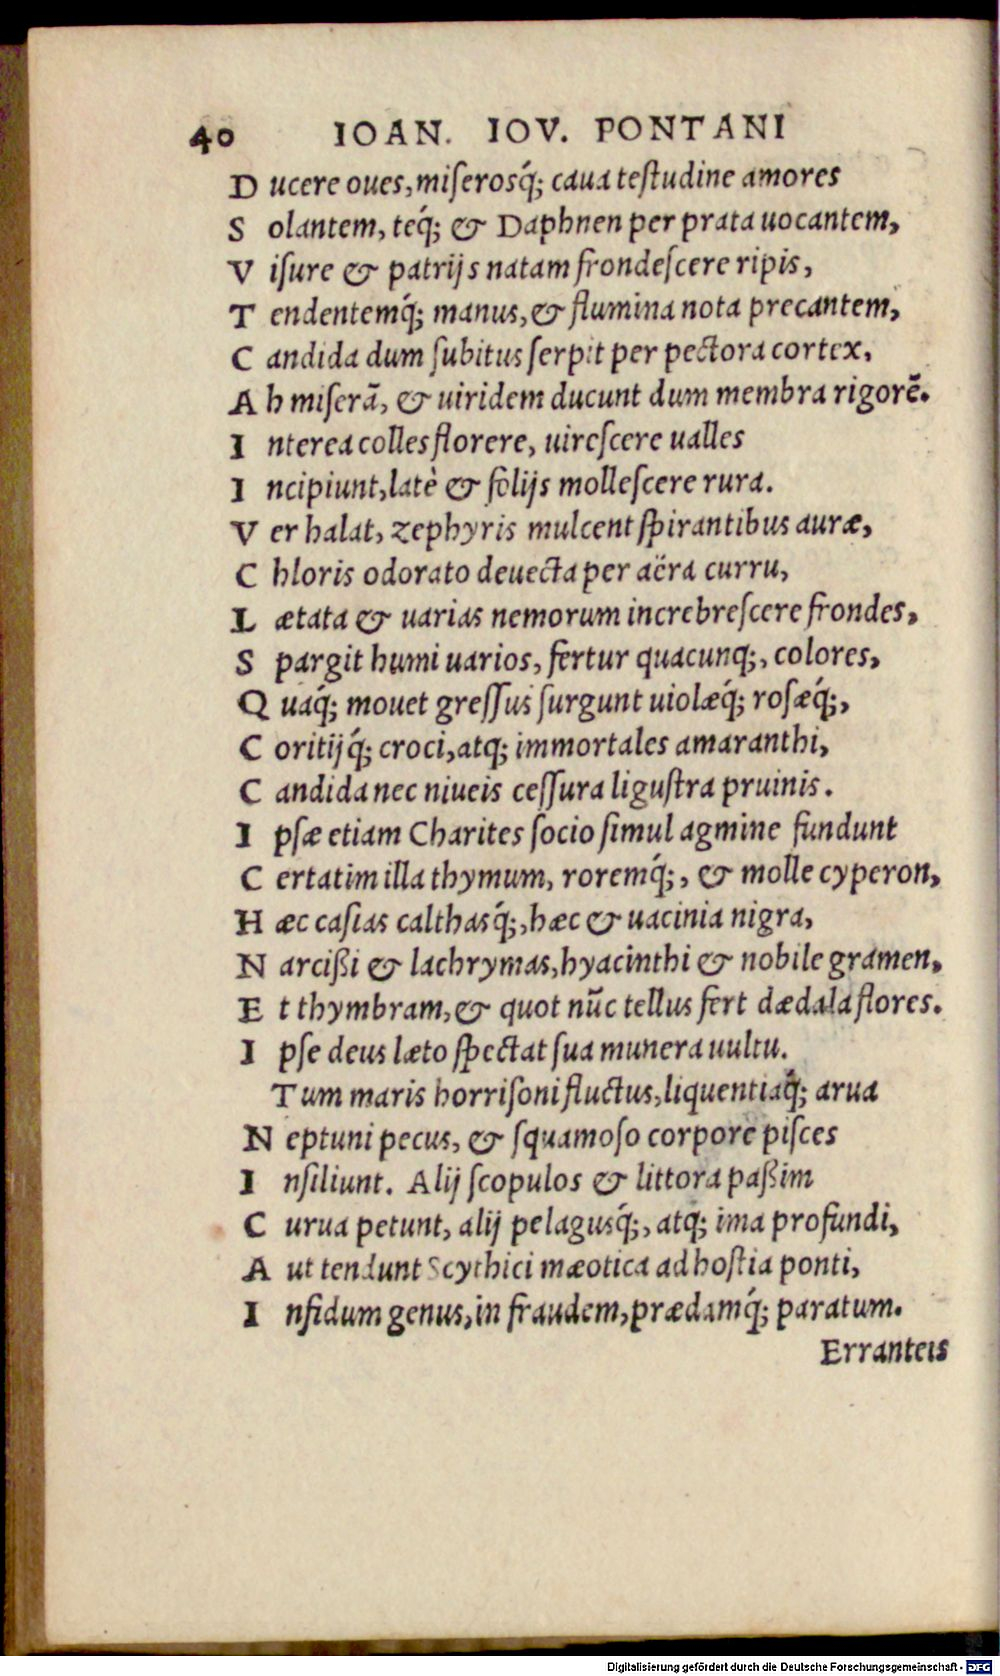 40 IOAN. IOV. PONTANI
D ucere oues, miſerosq́; caua teſtudine amores
S olantem, teq́; & Daphnen per prata uocantem,
V iſure & patrijs natam frondeſcere ripis,
T endentemq́; manus, & flumina nota precantem,
C andida dum ſubitus ſerpit per pectora cortex,
A h miſerã, & uiridem ducunt dum membra rigorẽ.
I nterea colles florere, uireſcere ualles
I ncipiunt, latè & folijs molleſcere rura.
V er halat, zephyris mulcent ſpirantibus auræ,
C hloris odorato deuecta per aëra curru,
L ætata & uarias nemorum increbreſcere frondes,
S pargit humi uarios, fertur quacunq;, colores,
Q uaq́; mouet greſſus ſurgunt uiolæq́; roſæq́;,
C oritijq́; croci, atq; immortales amaranthi,
C andida nec niueis ceſſura liguſtra pruinis.
I pſæ etiam Charites ſocio ſimul agmine fundunt
C ertatim illa thymum, roremq́;, & molle cyperon,
H æc caſias calthasq́;, hæc & uacinia nigra,
N arcißi & lachrymas, hyacinthi & nobile gramen,
E t thymbram, & quot nũc tellus fert dædala flores.
I pſe deus læto ſpectat ſua munera uultu.
Tum maris horriſoni fluctus, liquentiaq́; arua
N eptuni pecus, & ſquamoſo corpore piſces
I nſiliunt. Alij ſcopulos & littora paßim
C urua petunt, alij pelagusq́;, atq; ima profundi,
A ut tendunt Scythici mæotica ad hoſtia ponti,
I nfidum genus, in fraudem, prædamq́; paratum.
Erranteis
Digitalisierung gefördert durch die Deutsche Forschungsgemeinschaft - DFG